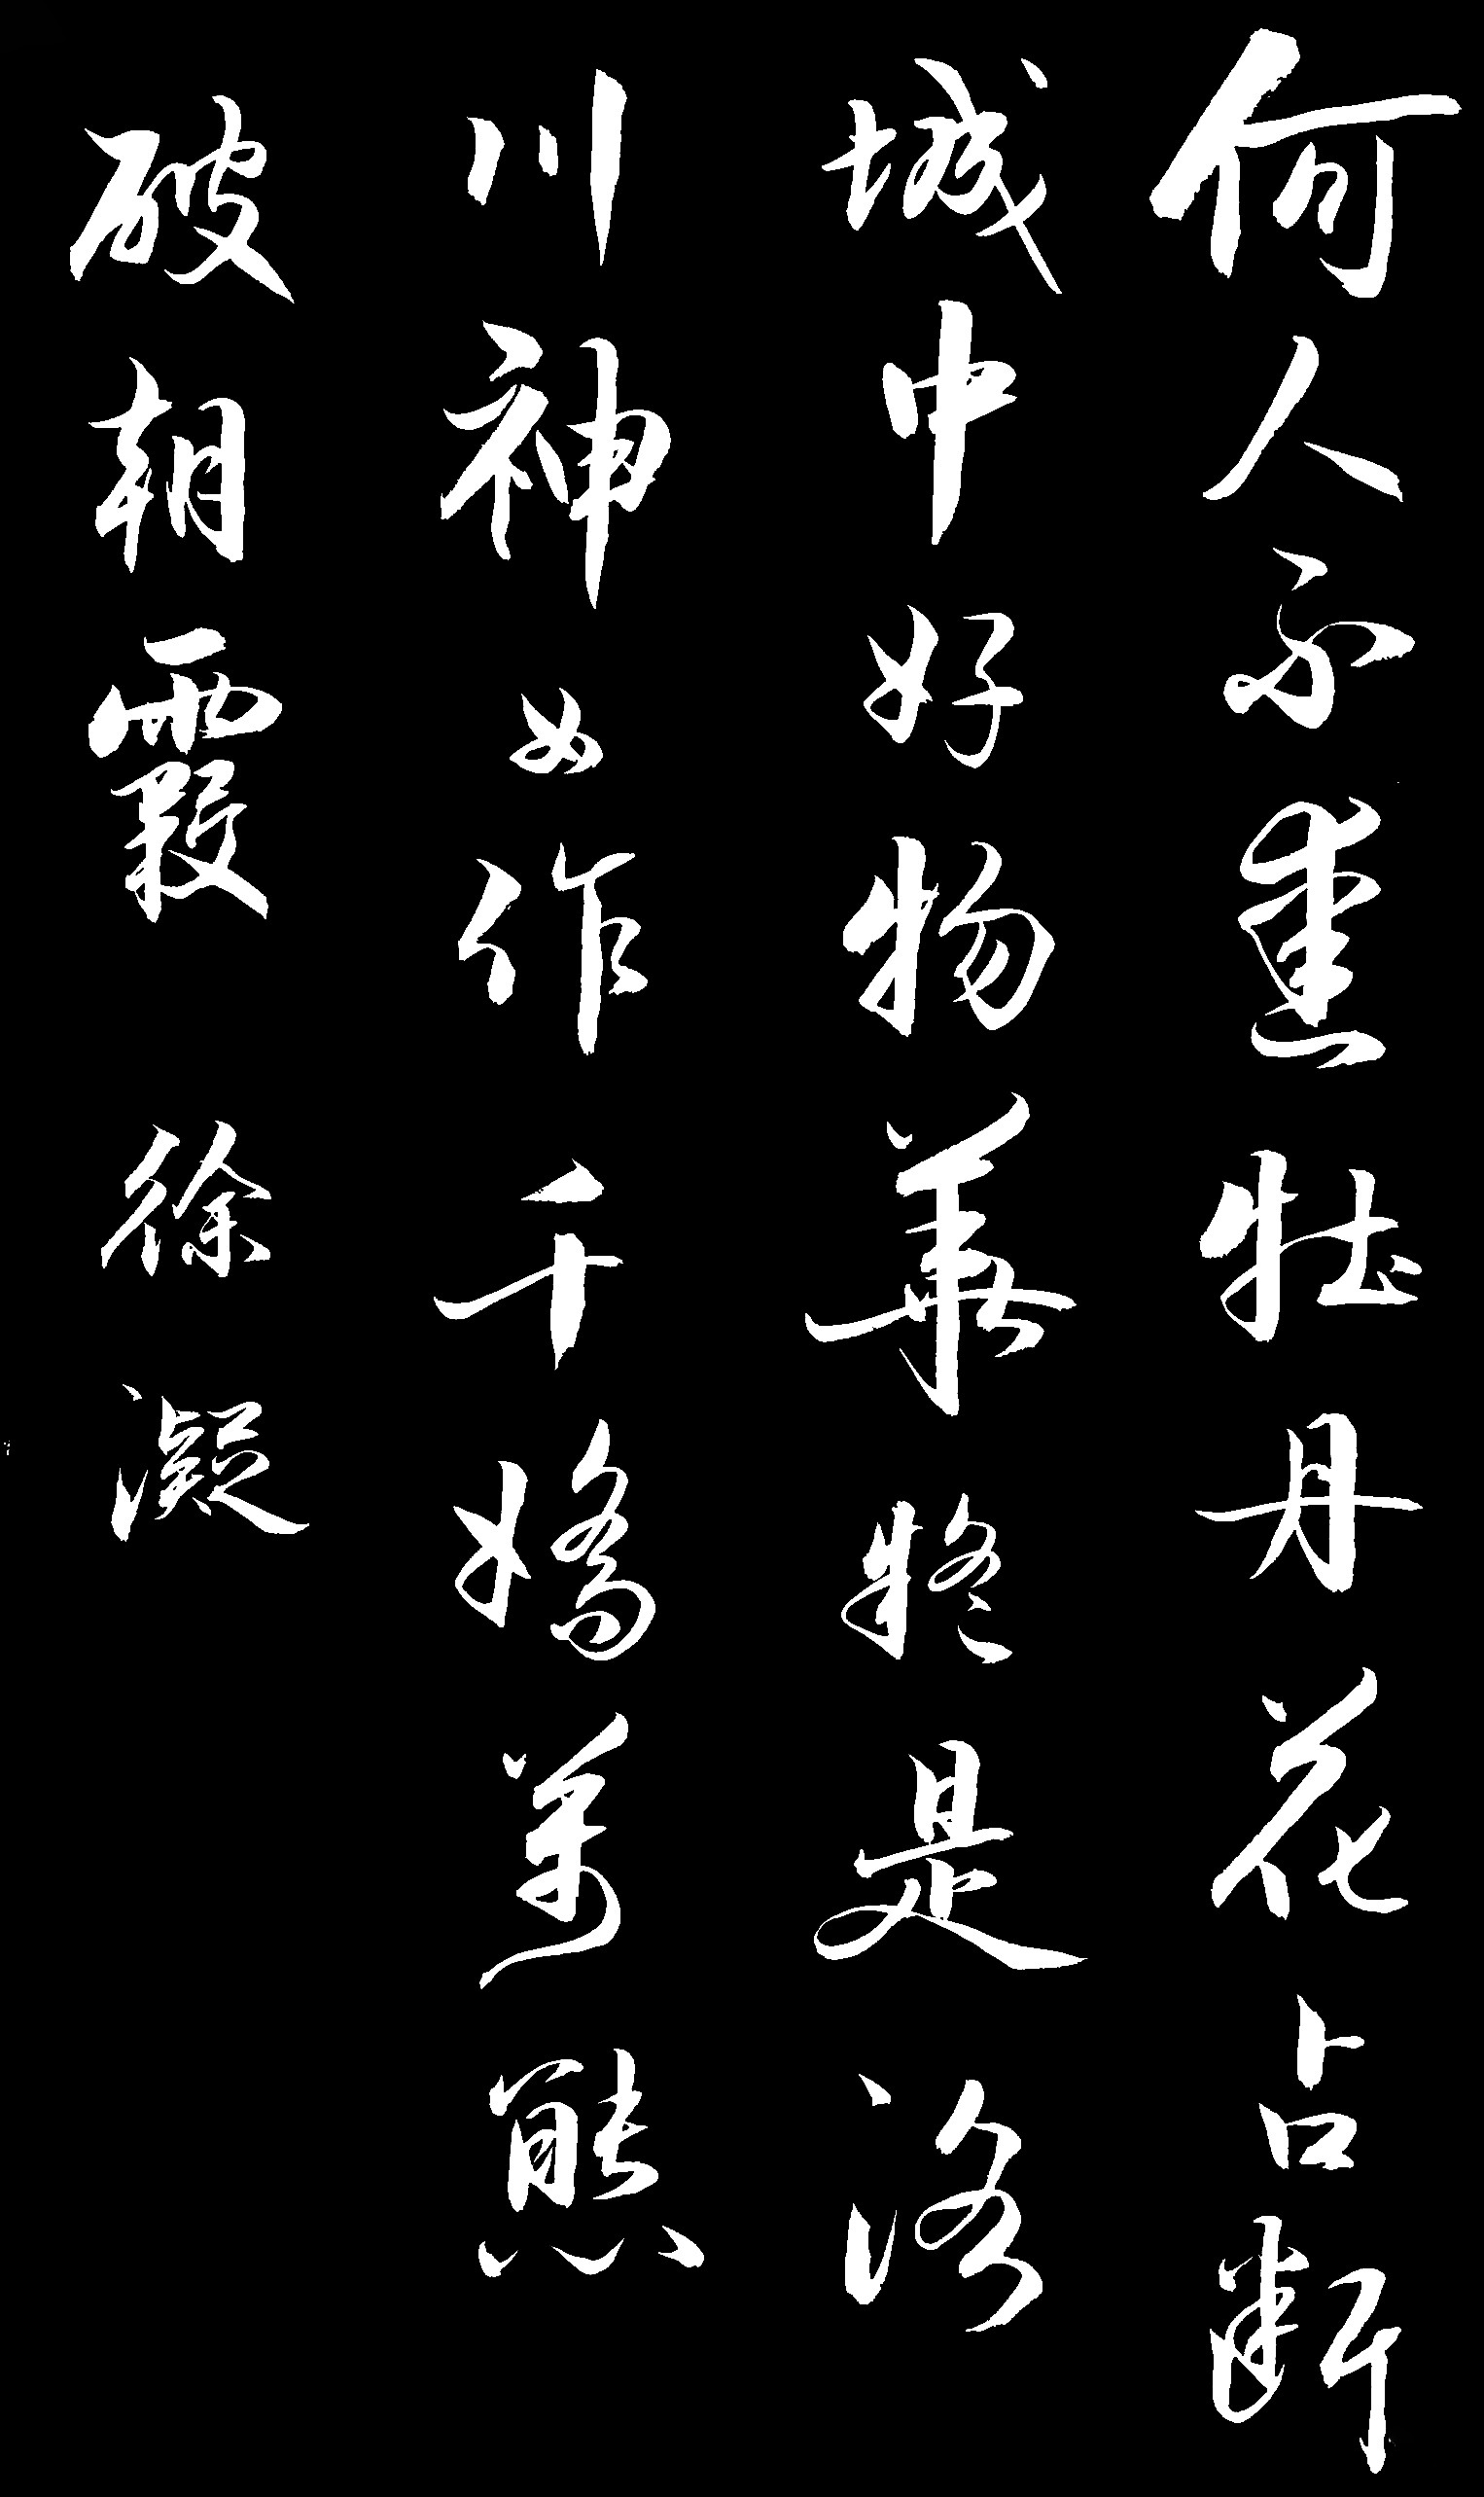 何人不愛牡丹花占断
城中好物華疑是洛
川神女作千嬌萬態
破朝霞 徐凝